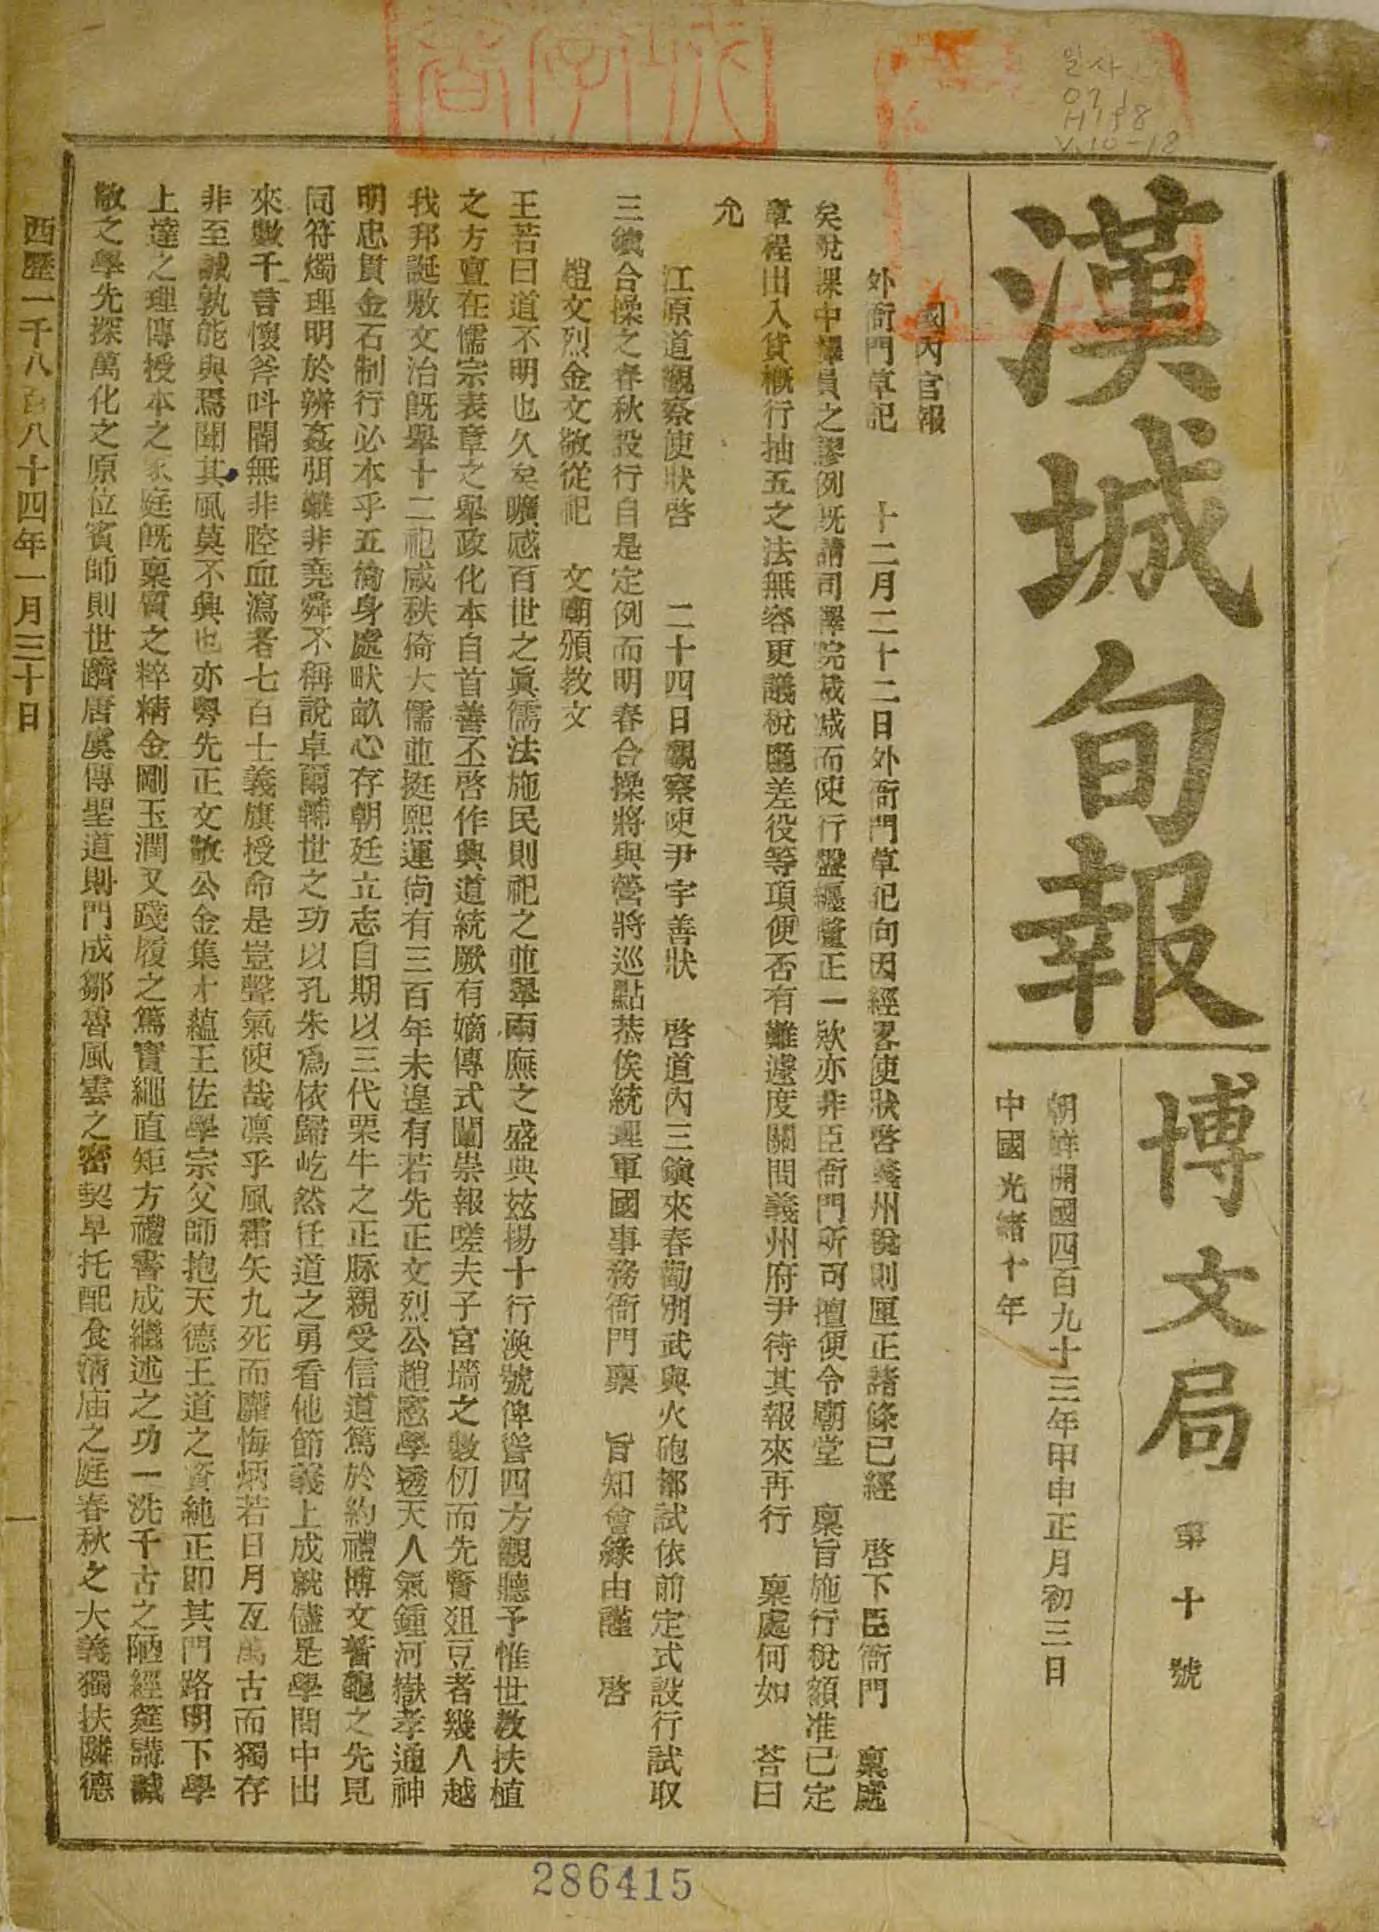 漢城旬報
博文局
第十號
朝鮮開國四百九十三年甲申正月初三日
中國光緒十年
國內官報
外衙門草記 十二月二十二日外衙門草記向因經畧使狀啓義州稅則釐正諸條已經 啓下臣衙門 稟處
矣稅課中譯員之謬例旣請司譯院裁减而使行盤纏釐正一欵亦非臣衙門所可擅便令廟堂 稟旨施行稅額准已定
章程出入貨槪行抽五之法無容更議稅廳差役等項便否有難遽度關問義州府尹待其報來再行 稟處何如 答曰
允
江原道觀察使狀啓 二十四日觀察使尹宇善狀 啓道內三鎭來春勸別武與火砲都試依前定式設行試取
三鎭合操之春秋設行自是定例而明春合操將與營將巡點恭俟統理軍國事務衙門稟 旨知會緣由謹 啓
趙文烈金文敬從祀 文廟頒敎文
王若曰道不明也久矣曠感百世之眞儒法施民則祀之並擧兩廡之盛典玆揚十行渙號俾聳四方觀聽予惟世敎扶植
之方亶在儒宗表章之擧政化本自首善丕啓作興道統厥有嫡傳式闡崇報嗟夫子宮墻之數仞而先賢俎豆者幾人越
我邦誕敷文治旣擧十二祀咸秩猗大儒並挺熙運尙有三百年未遑有若先正文烈公趙憲學透天人氣鍾河嶽孝通神
明忠貫金石制行必本乎五倫身處畎畝心存朝廷立志自期以三代栗牛之正脉親受信道篤於約禮博文蓍龜之先見
同符燭理明於辨姦弭難非堯舜不稱說卓爾輔世之功以孔朱爲依歸屹然任道之勇看他節義上成就儘是學問中出
來數千言懷斧叫閽無非腔血瀉者七百士義旗授命是豈聲氣使哉凛乎風霜矢九死而靡悔炳若日月亙萬古而獨存
非至誠孰能與焉聞其風莫不興也亦粤先正文敬公金集才蘊王佐學宗父師抱天德王道之資純正即其門路明下學
上達之理傳授本之家庭旣稟質之粹精金剛玉潤又踐履之篤實繩直矩方禮書成繼述之功一洗千古之陋經筵講誠
敬之學先探萬化之原位賓師則世躋唐虞傳聖道則門成鄒魯風雲之密契早托配食淸庙之庭春秋之大義獨扶隣德
西歷一千八百八十四年一月三十日
一
286415